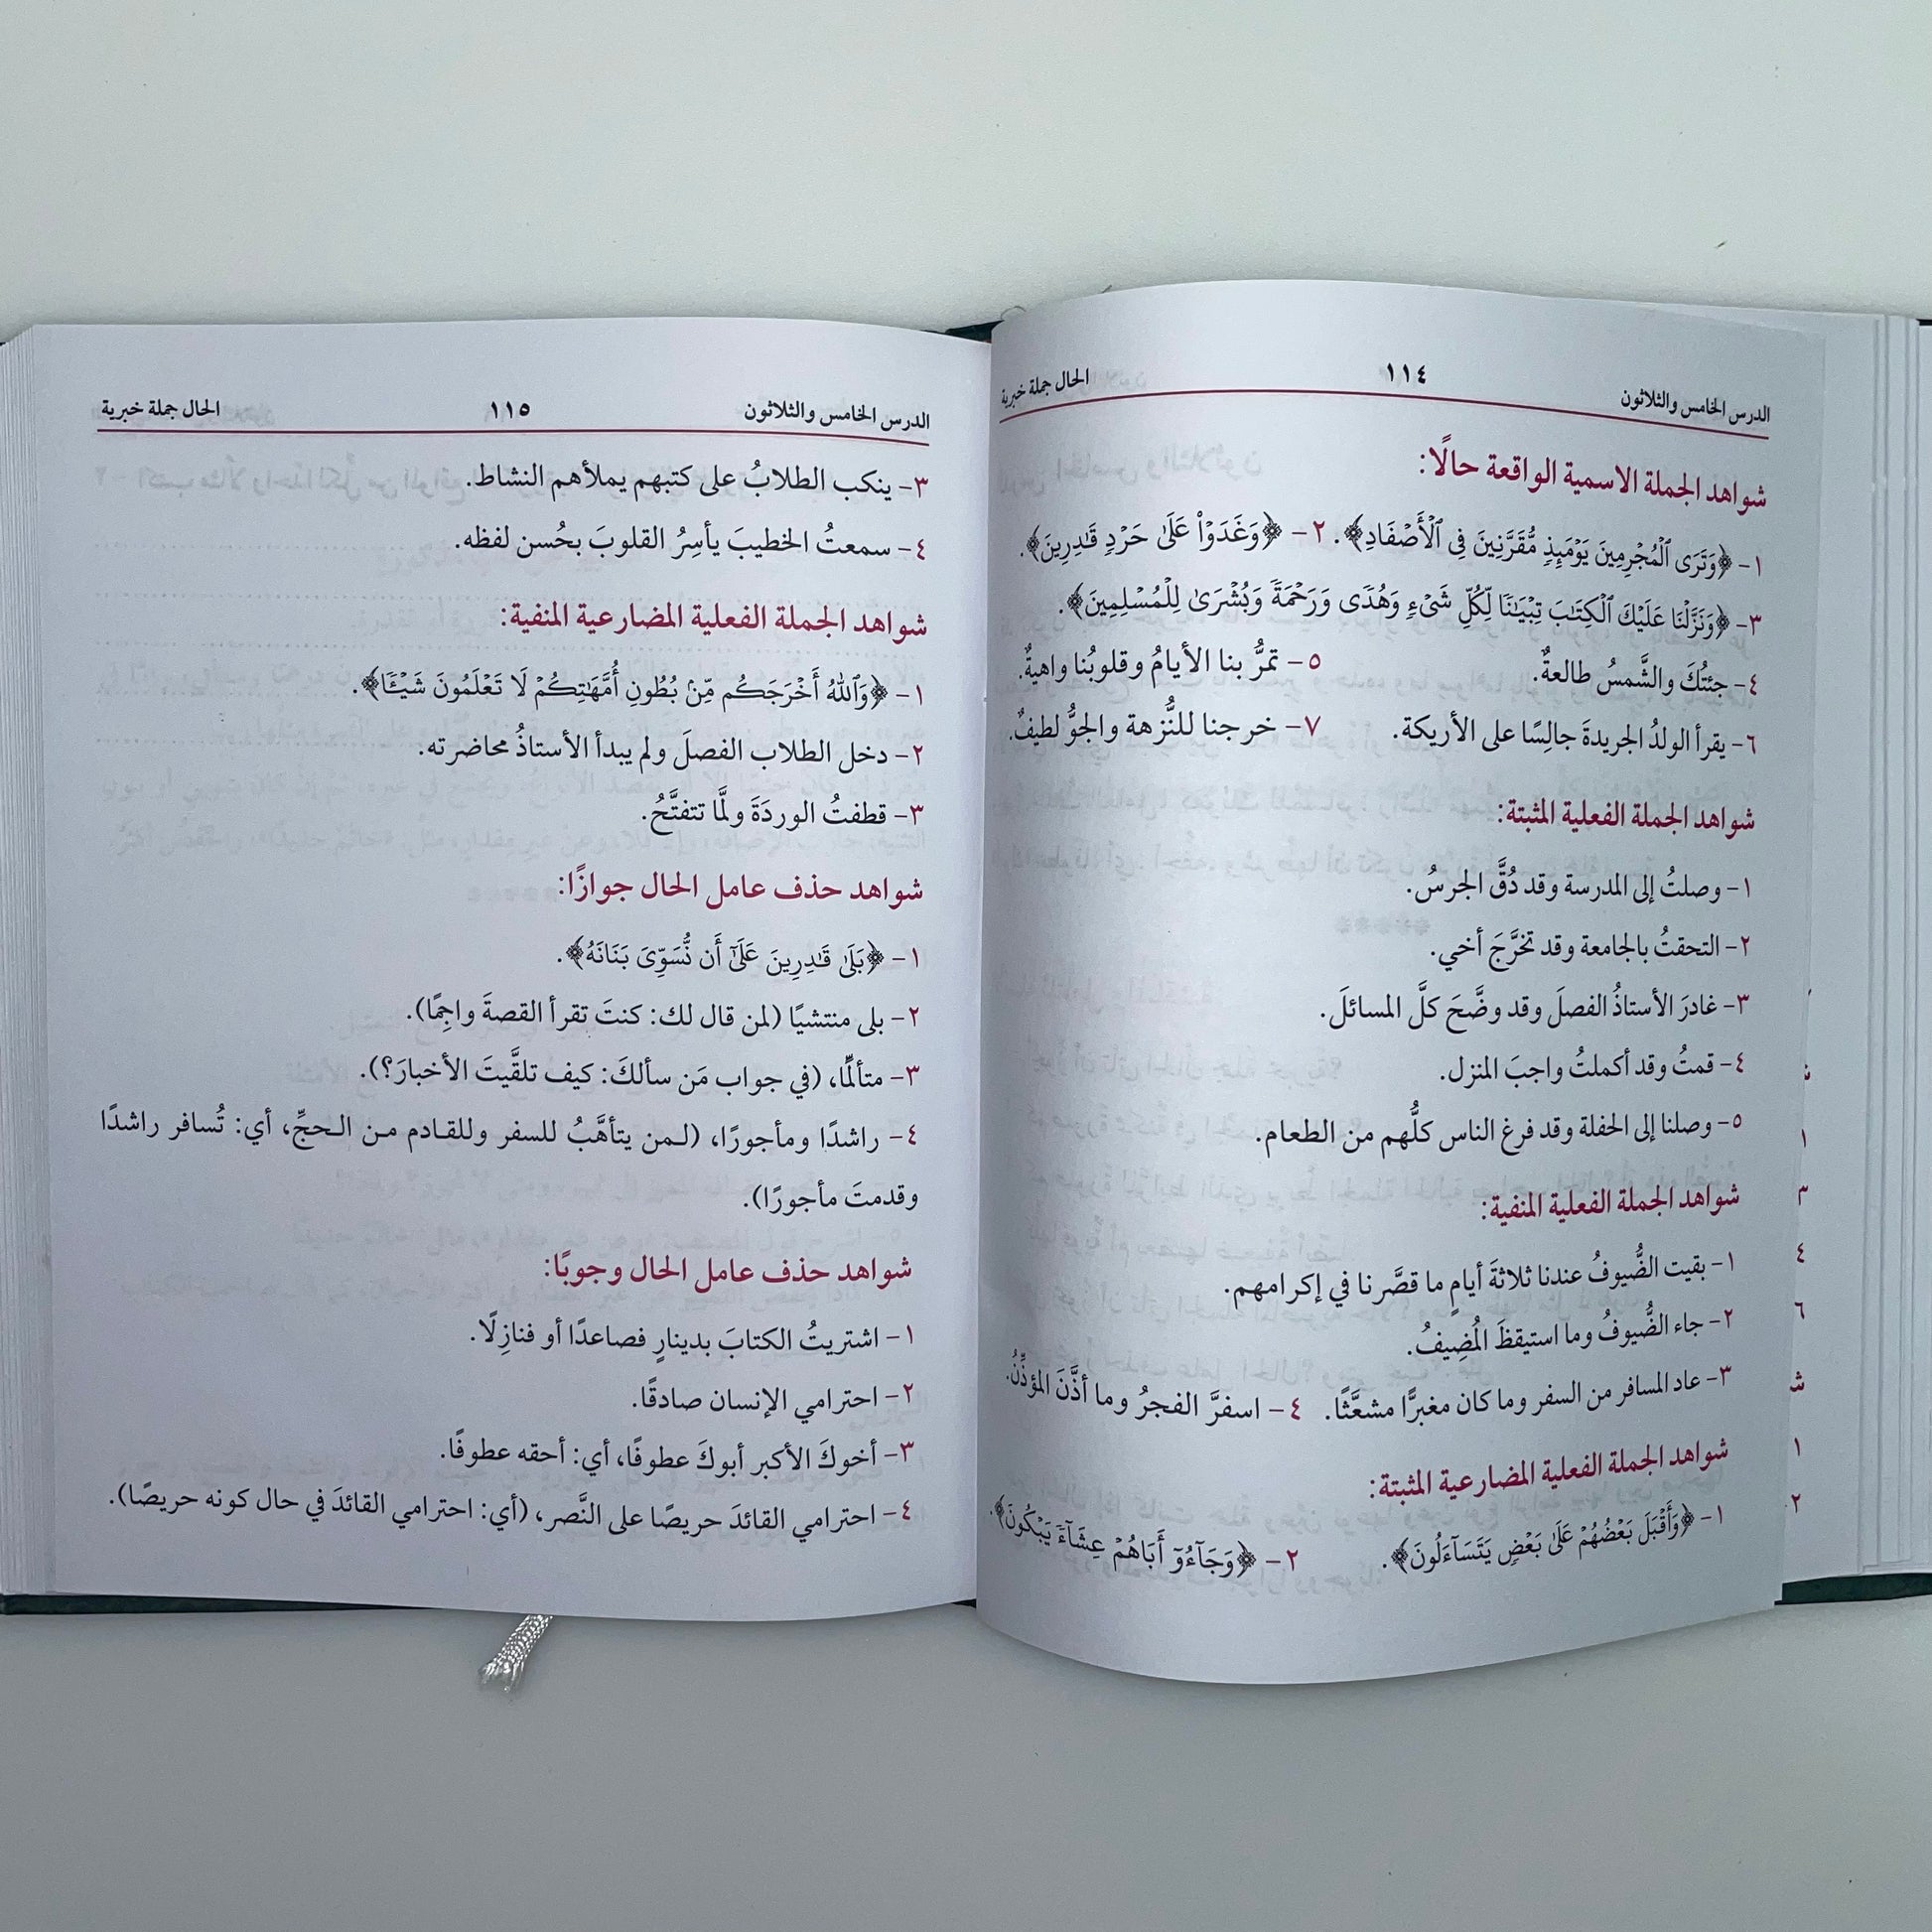 الدرس الخامس والثلاثون ١١٤ الحال جملة خبرية
شواهد الجملة الاسمية الواقعة حالًا:
١- ﴿وَتَرَى ٱلْمُجْرِمِينَ يَوْمَئِذٍ مُّقَرَّنِينَ فِى ٱلْأَصْفَادِ﴾. ٢- ﴿وَغَدَوْا۟ عَلَىٰ حَرْدٍ قَـٰدِرِينَ﴾.
٣- ﴿وَنَزَّلْنَا عَلَيْكَ ٱلْكِتَـٰبَ تِبْيَـٰنًا لِّكُلِّ شَىْءٍ وَهُدًى وَرَحْمَةً وَبُشْرَىٰ لِلْمُسْلِمِينَ﴾.
٤- جئتُكَ والشَّمسُ طالعةٌ. ٥- تمرُّ بنا الأيامُ وقلوبُنا واهيةٌ.
٦- يقرأ الولدُ الجريدةَ جالِسًا على الأريكة. ٧- خرجنا للنُّزهة والجوُّ لطيفٌ.
شواهد الجملة الفعلية المثبتة:
١- وصلتُ إلى المدرسة وقد دُقَّ الجرسُ.
٢- التحقتُ بالجامعة وقد تخرَّجَ أخي.
٣- غادرَ الأستاذُ الفصلَ وقد وضَّحَ كلَّ المسائلَ.
٤- قمتُ وقد أكملتُ واجبَ المنزل.
٥- وصلنا إلى الحفلة وقد فرغ الناس كلُّهم من الطعام.
شواهد الجملة الفعلية المنفية:
١- بقيت الضُّيوفُ عندنا ثلاثةَ أيامٍ ما قصَّرنا في إكرامهم.
٢- جاء الضُّيوفُ وما استيقظَ المُضِيفُ.
٣- عاد المسافر من السفر وما كان مغبرًّا مشعَّثًا. ٤- اسفرَّ الفجرُ وما أذَّنَ المؤذِّنُ.
شواهد الجملة الفعلية المضارعية المثبتة:
١- ﴿وَأَقْبَلَ بَعْضُهُمْ عَلَىٰ بَعْضٍ يَتَسَآءَلُونَ﴾. ٢- ﴿وَجَآءُوٓ أَبَاهُمْ عِشَآءً يَبْكُونَ﴾.
الدرس الخامس والثلاثون ١١٥ الحال جملة خبرية
٣- ينكب الطلابُ على كتبهم يملأهم النشاط.
٤- سمعتُ الخطيبَ يأسِرُ القلوبَ بحُسن لفظه.
شواهد الجملة الفعلية المضارعية المنفية:
١- ﴿وَٱللَّهُ أَخْرَجَكُم مِّنۢ بُطُونِ أُمَّهَـٰتِكُمْ لَا تَعْلَمُونَ شَيْـًٔا﴾.
٢- دخل الطلاب الفصلَ ولم يبدأ الأستاذُ محاضرته.
٣- قطفتُ الوردَةَ ولمَّا تتفتَّحُ.
شواهد حذف عامل الحال جوازًا:
١- ﴿بَلَىٰ قَـٰدِرِينَ عَلَىٰٓ أَن نُّسَوِّىَ بَنَانَهُ﴾.
٢- بلى منتشيًا (لمن قال لك: كنتَ تقرأ القصةَ واجِمًا).
٣- متألمًّا، (في جواب مَن سألكَ: كيف تلقَّيتَ الأخبارَ؟).
٤- راشدًا ومأجورًا، (لـمن يتأهَّبُ للسفر وللقـادم مـن الـحجِّ، أي: تُسافر راشدًا
وقدمتَ مأجورًا).
شواهد حذف عامل الحال وجوبًا:
١- اشتريتُ الكتابَ بدينارٍ فصاعدًا أو فنازِلًا.
٢- احترامي الإنسان صادقًا.
٣- أخوكَ الأكبر أبوكَ عطوفًا، أي: أحقه عطوفًا.
٤- احترامي القائدَ حريصًا على النَّصر، (أي: احترامي القائدَ في حال كونه حريصًا).